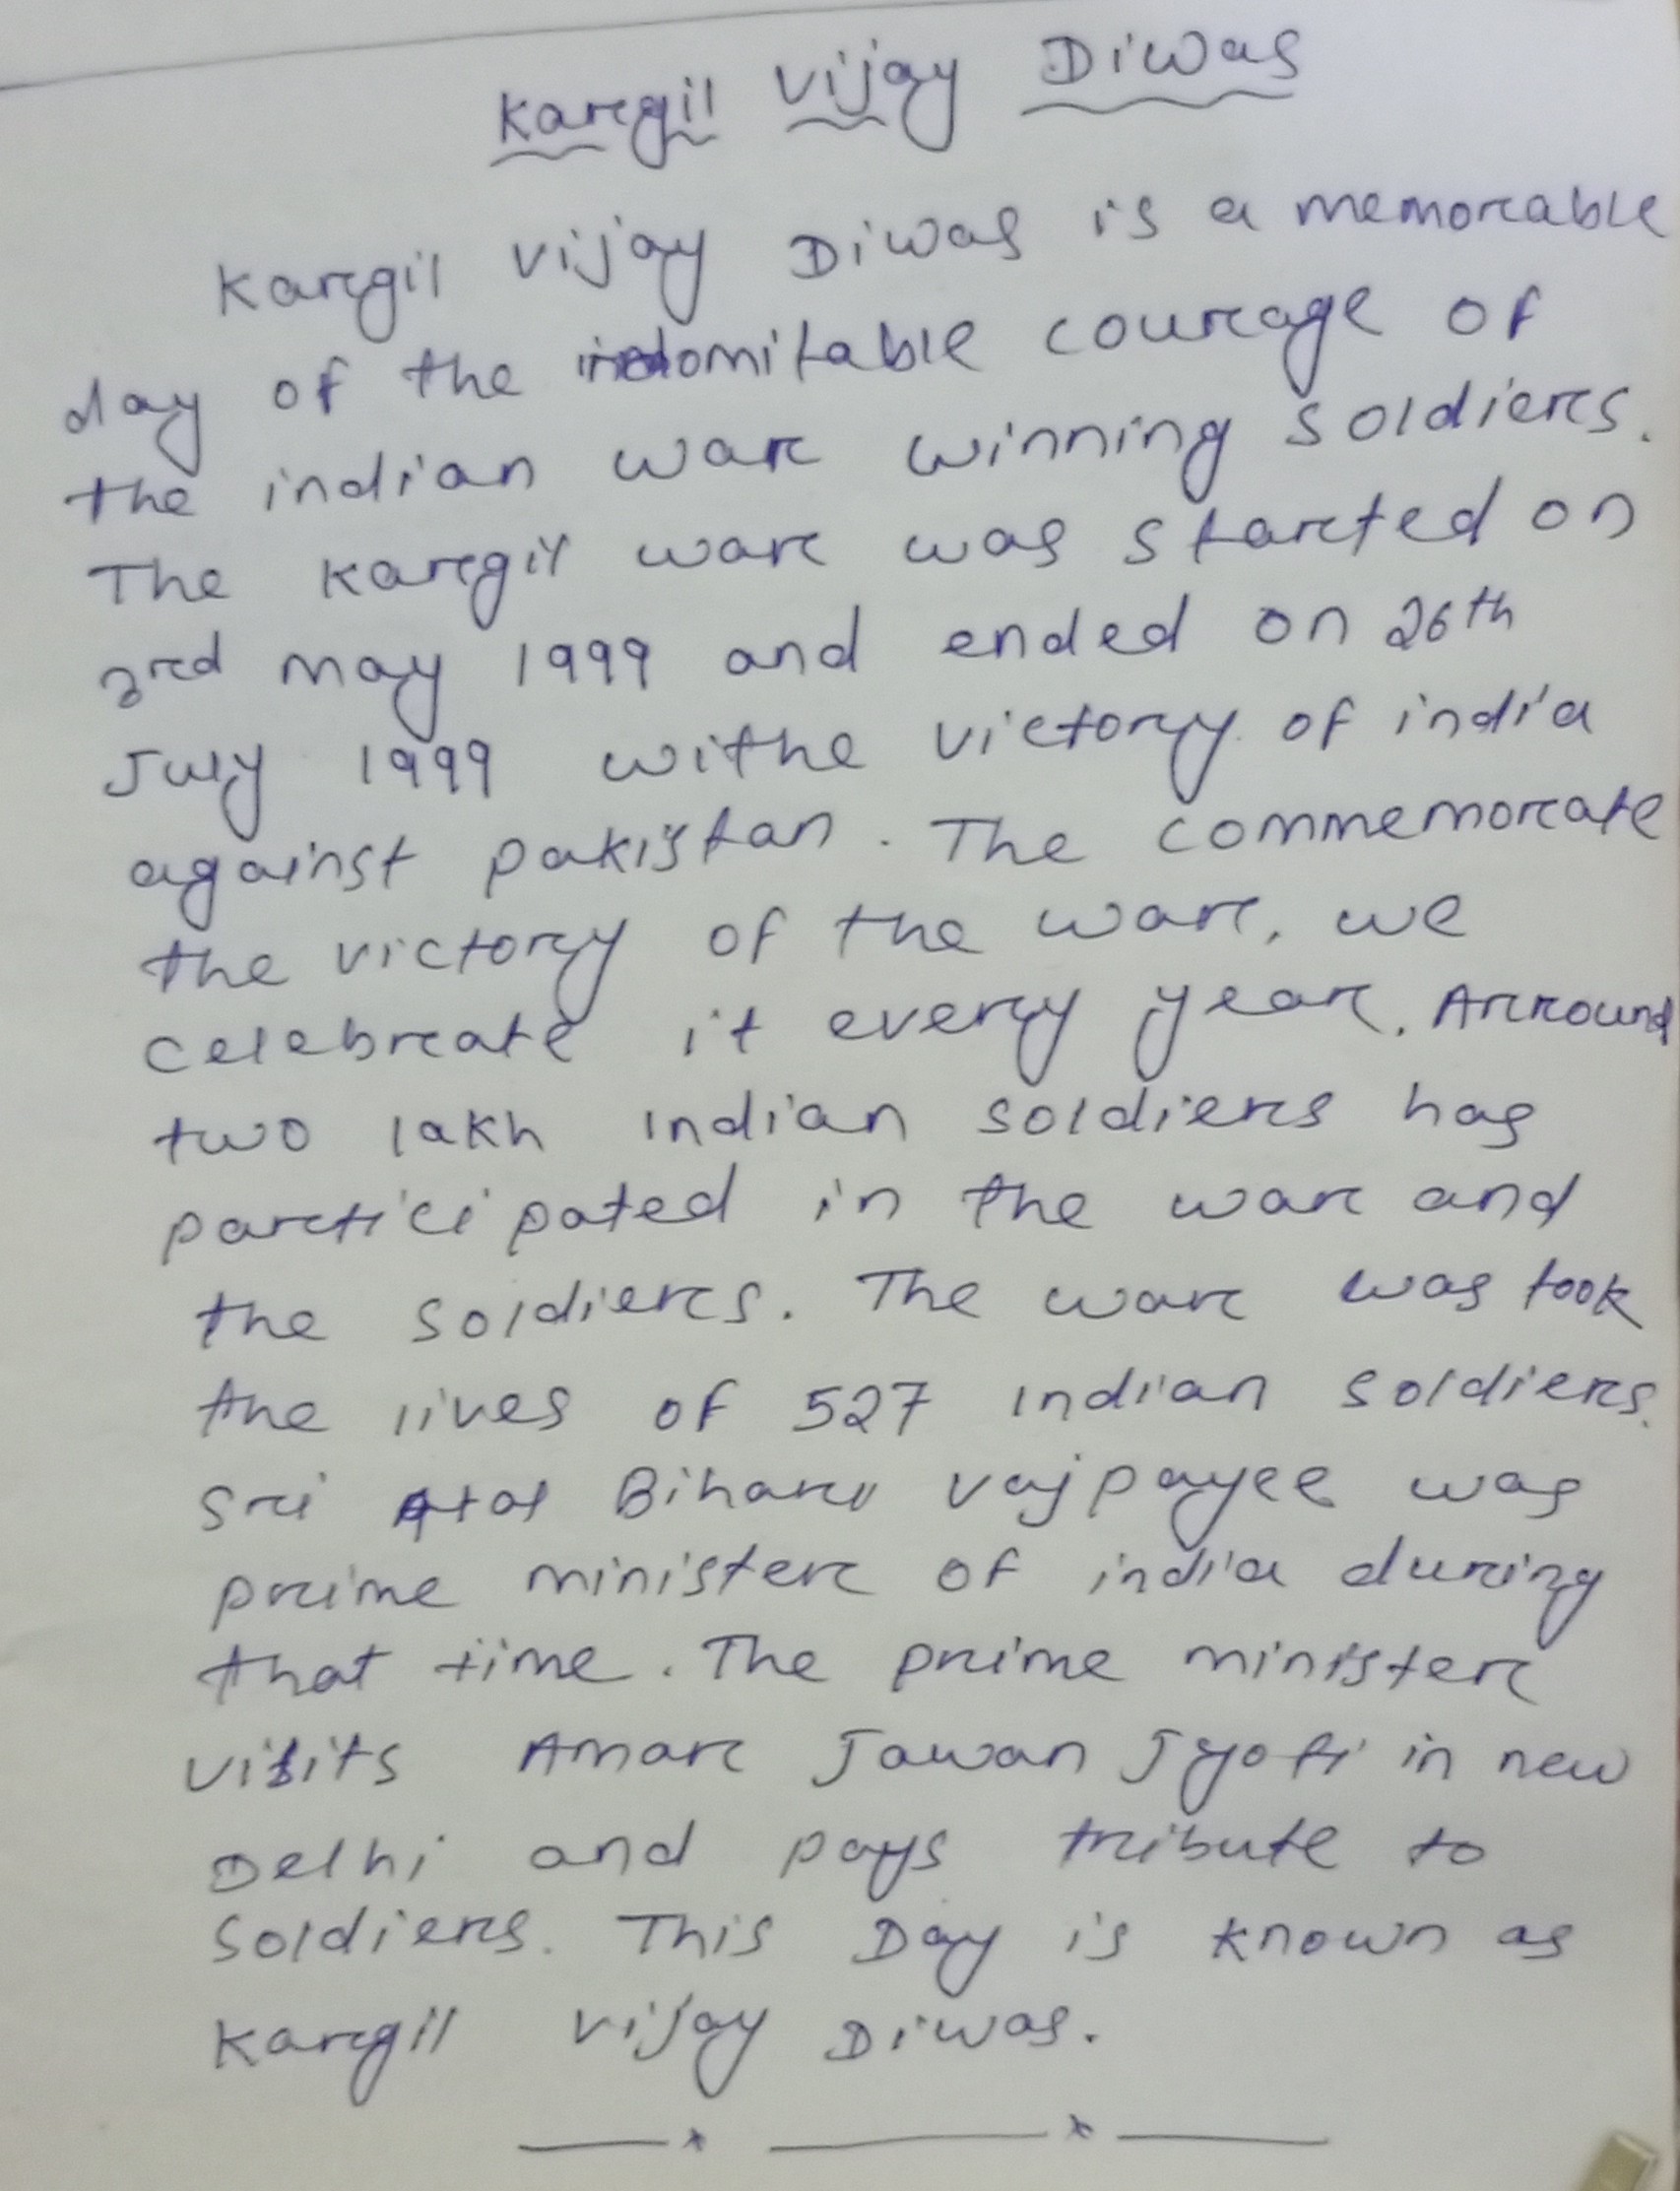 Kargil Vijay Diwas
Kargil Vijay Diwas is a memorable
day of the indomitable courage of
the indian war winning soldiers.
The Kargil war was started on
3rd may 1999 and ended on 26th
July 1999 withe victory of india
against pakistan. The commemorate
the victory of the war, we
celebrate it every year. Arround
two lakh Indian soldiers has
participated in the war and
the soldiers. The war was took
the lives of 527 Indian soldiers.
Sri Atal Bihari Vajpayee was
prime minister of india during
that time. The prime minister
visits Amar Jawan Jyoti in new
Delhi and pays tribute to
Soldiers. This Day is known as
Kargil Vijay Diwas.